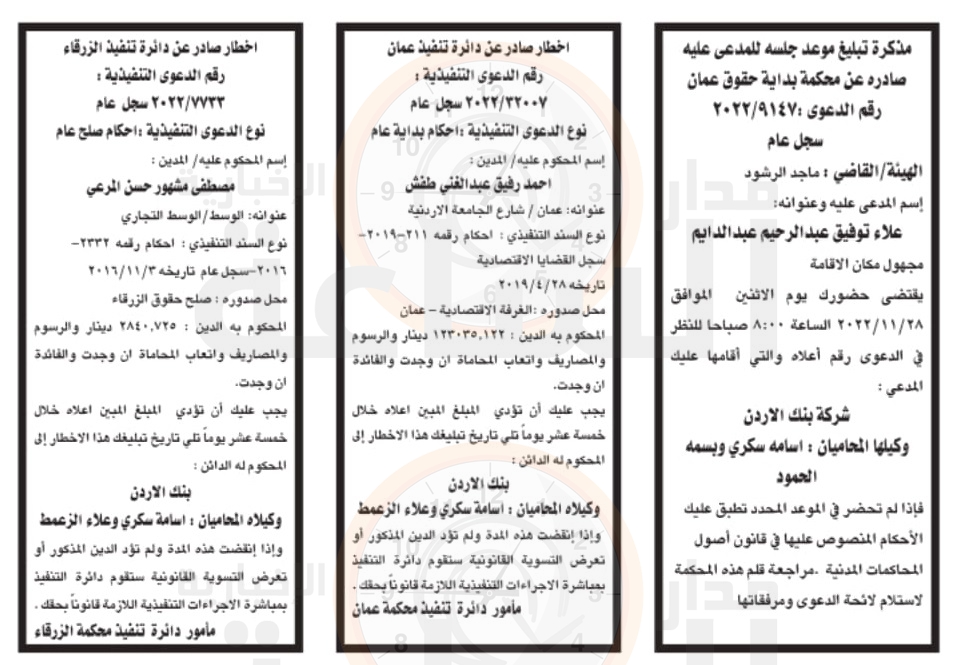 مذكرة تبليغ موعد جلسه للمدعى عليه
صادره عن محكمة بداية حقوق عمان
رقم الدعوى :٢٠٢٢/٩١٤٧
سجل عام
الهيئة/القاضي : ماجد الرشود
إسم المدعى عليه وعنوانه:
علاء توفيق عبدالرحيم عبدالدايم
مجهول مكان الاقامة
يقتضى حضورك يوم الاثنين الموافق
٢٠٢٢/١١/٢٨ الساعة ٨:٠٠ صباحا للنظر
في الدعوى رقم أعلاه والتي أقامها عليك
المدعي :
شركة بنك الاردن
وكيلها المحاميان : اسامه سكري وبسمه
الحمود
فإذا لم تحضر في الموعد المحدد تطبق عليك
الأحكام المنصوص عليها في قانون أصول
المحاكمات المدنية .مراجعة قلم هذه المحكمة
لاستلام لائحة الدعوى ومرفقاتها
اخطار صادر عن دائرة تنفيذ عمان
رقم الدعوى التنفيذية :
٢٠٢٢/٣٢٠٠٧ سجل عام
نوع الدعوى التنفيذية :احكام بداية عام
إسم المحكوم عليه/ المدين :
احمد رفيق عبدالغني طفش
عنوانه: عمان / شارع الجامعة الاردنية
نوع السند التنفيذي : احكام رقمه ٢١١-٢٠١٩-
سجل القضايا الاقتصادية
تاريخه ٢٠١٩/٤/٢٨
محل صدوره :الغرفة الاقتصادية - عمان
المحكوم به الدين : ١٢٣٠٣٥,١٢٢ دينار والرسوم
والمصاريف واتعاب المحاماة ان وجدت والفائدة
ان وجدت.
يجب عليك أن تؤدي المبلغ المبين اعلاه خلال
خمسة عشر يوماً تلي تاريخ تبليغك هذا الاخطار إلى
المحكوم له الدائن :
بنك الاردن
وكيلاه المحاميان : اسامة سكري وعلاء الزعمط
وإذا إنقضت هذه المدة ولم تؤد الدين المذكور أو
تعرض التسوية القانونية ستقوم دائرة التنفيذ
بمباشرة الاجراءات التنفيذية اللازمة قانوناً بحقك .
مأمور دائرة تنفيذ محكمة عمان
اخطار صادر عن دائرة تنفيذ الزرقاء
رقم الدعوى التنفيذية :
٢٠٢٢/٧٧٣٣ سجل عام
نوع الدعوى التنفيذية :احكام صلح عام
إسم المحكوم عليه/ المدين :
مصطفى مشهور حسن المرعي
عنوانه: الوسط/الوسط التجاري
نوع السند التنفيذي : احكام رقمه ٢٣٣٢-
٢٠١٦-سجل عام تاريخه ٢٠١٦/١١/٣
محل صدوره : صلح حقوق الزرقاء
المحكوم به الدين : ٢٨٤٠,٧٢٥ دينار والرسوم
والمصاريف واتعاب المحاماة ان وجدت والفائدة
ان وجدت.
يجب عليك أن تؤدي المبلغ المبين اعلاه خلال
خمسة عشر يوماً تلي تاريخ تبليغك هذا الاخطار إلى
المحكوم له الدائن :
بنك الاردن
وكيلاه المحاميان : اسامة سكري وعلاء الزعمط
وإذا إنقضت هذه المدة ولم تؤد الدين المذكور أو
تعرض التسوية القانونية ستقوم دائرة التنفيذ
بمباشرة الاجراءات التنفيذية اللازمة قانوناً بحقك .
مأمور دائرة تنفيذ محكمة الزرقاء